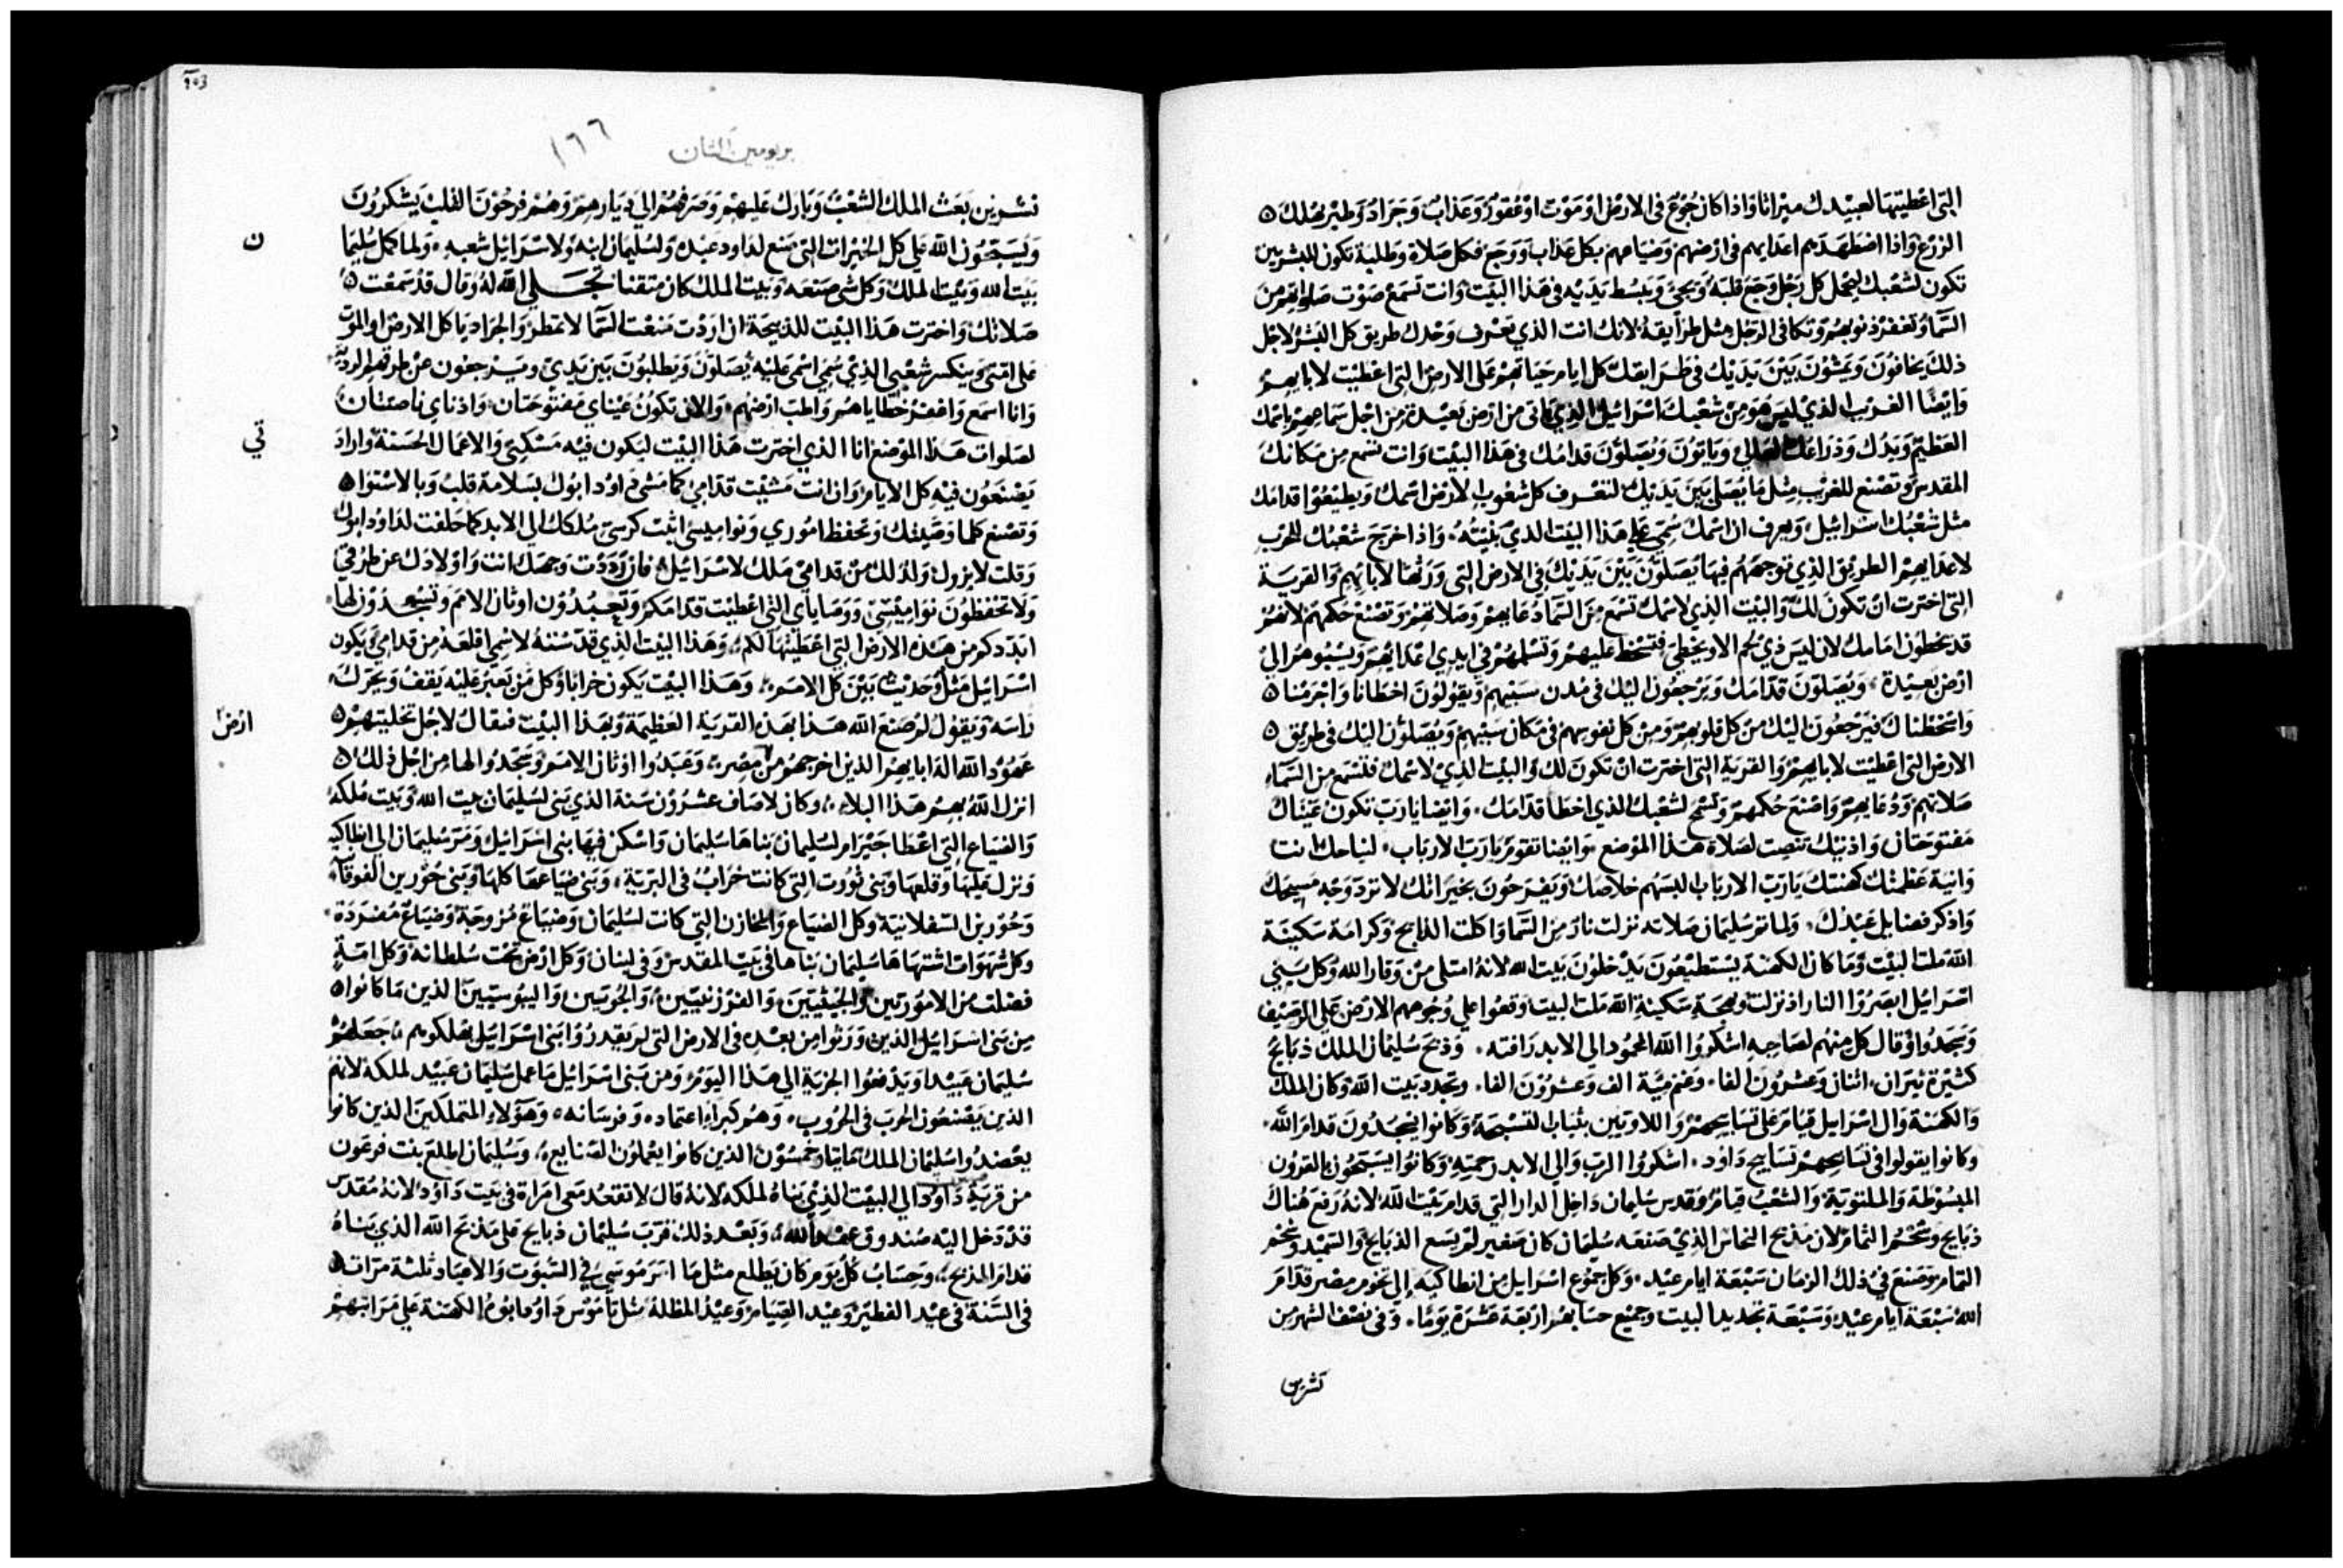 التى اعطيتها لعبيدك ميراثا واذا كان جوع فى الارض او موت او عقور وعذاب وجراد وطير يهلك
الزرع واذا اضطهدهم اعدايهم فى ارضهم وضياعهم بكل عذاب ووجع فكل صلاة وطلبة تكون للبشريين
تكون لشعبك ليجمل كل رجل وجع قلبه ويجئ ويبسط يديه فى هذا البيت وانت تسمع صوت صلواتهم من
السما وتغفر ذنوبهم وتكافى الرجل مثل طرايقه لانك انت الذي تعرف وحدك طريق كل البشر لاجل
ذلك يخافون ويمشون بين يديك فى طرايقك كل ايام حياتهم على الارض التى اعطيت لابايهم
وايضا الغريب الذي ليس هو من شعبك اسرائيل الذي ياتى من ارض بعيدة من اجل سماعهم باسمك
العظيم ويدك وذراعك العالي وياتون ويصلون قدامك فى هذا البيت وانت تسمع من مكانك
المقدس وتصنع للغريب مثل ما يصلى بين يديك لتعرف كل شعوب الارض اسمك ويطيعوا قدامك
مثل شعبك اسرائيل ويعرف ان اسمك سمى على هذا البيت الذي بنيته واذا خرج شعبك للحرب
لاعدايهم الطريق الذي توجههم فيها يصلون بين يديك فى الارض التى ورثها لابايهم والقرية
التى اخترت ان تكون لك والبيت الذي لاسمك تسمع من السما دعايهم وصلاتهم وتصنع حكمهم لانهم
قد يخطون امامك لان ليس ذي لحم الا ويخطى فتسخط عليهم وتسلمهم فى ايدي اعدايهم ويسبوهم الى
ارض بعيدة ويصلون قدامك ويرجعون اليك فى مدن سبيهم ويقولون اخطانا واجرمنا
واسخطناك فيرجعون اليك من كل قلوبهم ومن كل نفوسهم فى مكان سبيهم ويصلون اليك فى طريق
الارض التى اعطيت لابايهم والقرية التى اخترت ان تكون لك والبيت الذي لاسمك فتسمع من السماء
صلاتهم ودعايهم واصنع حكمهم وتسمح لشعبك الذي اخطا قدامك وايضا يا رب تكون عيناك
مفتوحتان واذنيك تنصت لصلاة هذا الموضع وايضا تقوم يا رب الارباب لنياحك انت
وانية عظمتك كهنتك يا رب الارباب البسهم خلاصك ويفرحون بخيراتك لا ترد وجه مسيحك
واذكر فضايل عبدك ولما تم سليمان صلاته نزلت نار من السما واكلت الذبايح وكرامة سكينة
الله ملت البيت وما كان الكهنة يستطيعون يدخلون بيت الله لانه امتلى من وقار الله وكل بني
اسرائيل ابصروا النار اذ نزلت وبهجة سكينة الله ملت البيت وقعوا على وجوههم الارض على الرصيف
وسجدوا وقال كل منهم لصاحبه اشكروا الله المحمود الى الابد رافته وذبح سليمان الملك ذبايح
كثيرة ثيران اثنان وعشرون الفا وغنم مية الف وعشرون الفا وتجدد بيت الله وكان الملك
والكهنة وال اسرايل قيام على تسابيحهم واللاويين بثياب التسبحة وكانوا يسجدون قدام الله
وكانوا يقولوا فى تسابيحهم تسابيح داود اشكروا الرب والى الابد رحمته وكانوا يسبحون بالقرون
المبسوطة والملتوية والشعب قيام وقدس سليمان داخل الدار التى قدام بيت الله لانه رفع هناك
ذبايح وشحم التمام لان مذبح النحاس الذي صنعه سليمان كان صغير لم يسع الذبايح والسميد وشحم
التمام وصنع فى ذلك الزمان سبعة ايام عيد وكل جموع اسرايل من انطاكيه الى تخوم مصر قدام
الله سبعة ايام عيد وسبعة تجديد البيت وجميع حسابهم اربعة عشرة يوما وفى نصف الشهر من
تشرين
بريومين الثان
١٦٦
تشرين بعث الملك الشعب وبارك عليهم وصرفهم الى ديارهم وهم فرحون القلب يشكرون
ويسبحون الله على كل الخيرات التى صنع لداود عبده ولسليمان ابنه ولاسرائيل شعبه ولما كمل سليما
ن
بيت الله وبيت الملك وكل شى صنعه وبيت الملك كان متقنا تجلى الله له وقال قد سمعت
صلاتك واخترت هذا البيت للذبيحة ان اردت منعت السما لا تمطر والجراد ياكل الارض او الموت
على امتى وينكسر شعبي الذي سمي اسمي عليه يصلون ويطلبون بين يدي ويرجعون عن طرقهم الردية
وانا اسمع واغفر خطاياهم واطيب ارضهم والان تكون عيناي مفتوحتان واذناي ناصتتان
لصلوات هذا الموضع انا الذي اخترت هذا البيت ليكون فيه مسكنى والاعمال الحسنة واراد
تي
يصنعون فيه كل الايام وان انت مشيت قدامي كما مشى داود ابوك بسلامة قلب وبالاستوا
وتصنع كلما وصيتك وتحفظ اموري ونواميسى اثبت كرسى ملكك الى الابد كما حلفت لداود ابوك
وقلت لا يزول ولد لك من قدامي ملك لاسرائيل فان رددت وجهك انت واولادك عن طرقي
ولا تحفظون نواميسى ووصاياي التى اعطيت قدامكم وتعبدون اوثان الامم وتسجدون لها
ابددكم من هذه الارض التى اعطيتها لكم وهذا البيت الذي قدسته لاسمي اقلعه من قدامي ويكون
اسرائيل مثل وحديث بين كل الامم وهذا البيت يكون خرابا وكل من يعبر عليه يقف ويحرك
راسه ويقول لم صنع الله هذا بهذه القرية العظيمة وبهذا البيت فيقال لاجل تخليتهم
ارض
عهود الله اله ابايهم الذين اخرجهم من مصر وعبدوا اوثان الامم وسجدوا لها من اجل ذلك
انزل الله بهم هذا البلاء وكان لاصاف عشرون سنة الذي بنى سليمان بيت الله وبيت ملكه
والضياع التى اعطا حيرام لسليمان بناها سليمان واسكن فيها بنى اسرائيل ومر سليمان الى انطاكيه
ونزل عليها وقلعها وبنى تورت التى كانت خراب فى البرية وبنى ضياعها كلها وبنى حورين الفوقا
وحورين السفلانية وكل الضياع والمخازن التى كانت لسليمان وضياع مزوجة وضياع مفردة
وكل شهوات اشتهاها سليمان بناها فى بيت المقدس وفى لبنان وكل ارض تحت سلطانه وكل امة
فضلت من الاموريين والحيثيين والفرزنيين والحويين واليبوسيين الذين ما كانوا
من بنى اسرائيل الذين ورثوا من بعدهم فى الارض التى لم يقدروا بنى اسرايل يهلكوهم جعلهم
سليمان عبيدا ويدفعوا الجزية الى هذا اليوم ومن بنى اسرائيل ما عمل سليمان عبيد لملكه لانهم
الذين يصنعون الحرب فى الحروب وهم كبراء اعتماده وفرسانه وهؤلاء المتملكين الذين كانوا
يعضدوا سليمان الملك مايتا وخمسون الذين كانوا يعملون الصنايع وسليمان اطلع بنت فرعون
من قرية داود الى البيت الذي بناه لملكه لانه قال لا تقعد معى امراة فى بيت داود لانه مقدس
قد دخل اليه صندوق عهد الله وبعد ذلك قرب سليمان ذبايح على مذبح الله الذي بناه
قدام المذبح وحساب كل يوم كان يطلع مثل ما امر موسى فى السبوت والاعياد ثلثة مرات
فى السنة فى عيد الفطير وعيد الصيام وعيد المظلة مثل ناموس داود ابوه الكهنة على مراتبهم